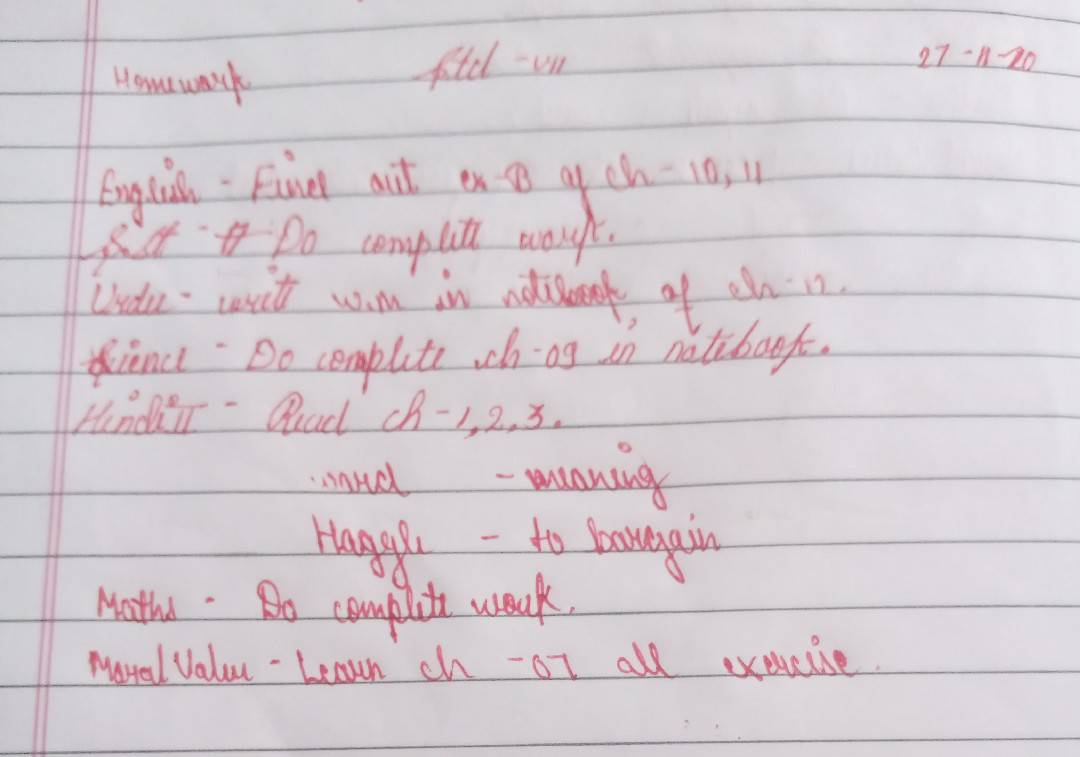 Homework Std - VII 27-11-20
English - Find out ex-B of ch-10, 11
S.St - Do complete work.
Urdu - writ w.m in notebook, of ch-12.
Science - Do complete ch-09 in notebook.
Hindi II - Read ch-1,2,3.
word - meaning
Haggle - to bargain
Maths - Do complete work.
Moral Value - Learn ch-07 all exercise.